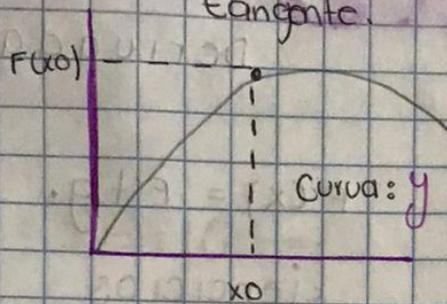 tangente.
F(x0)
Curva: y
x0